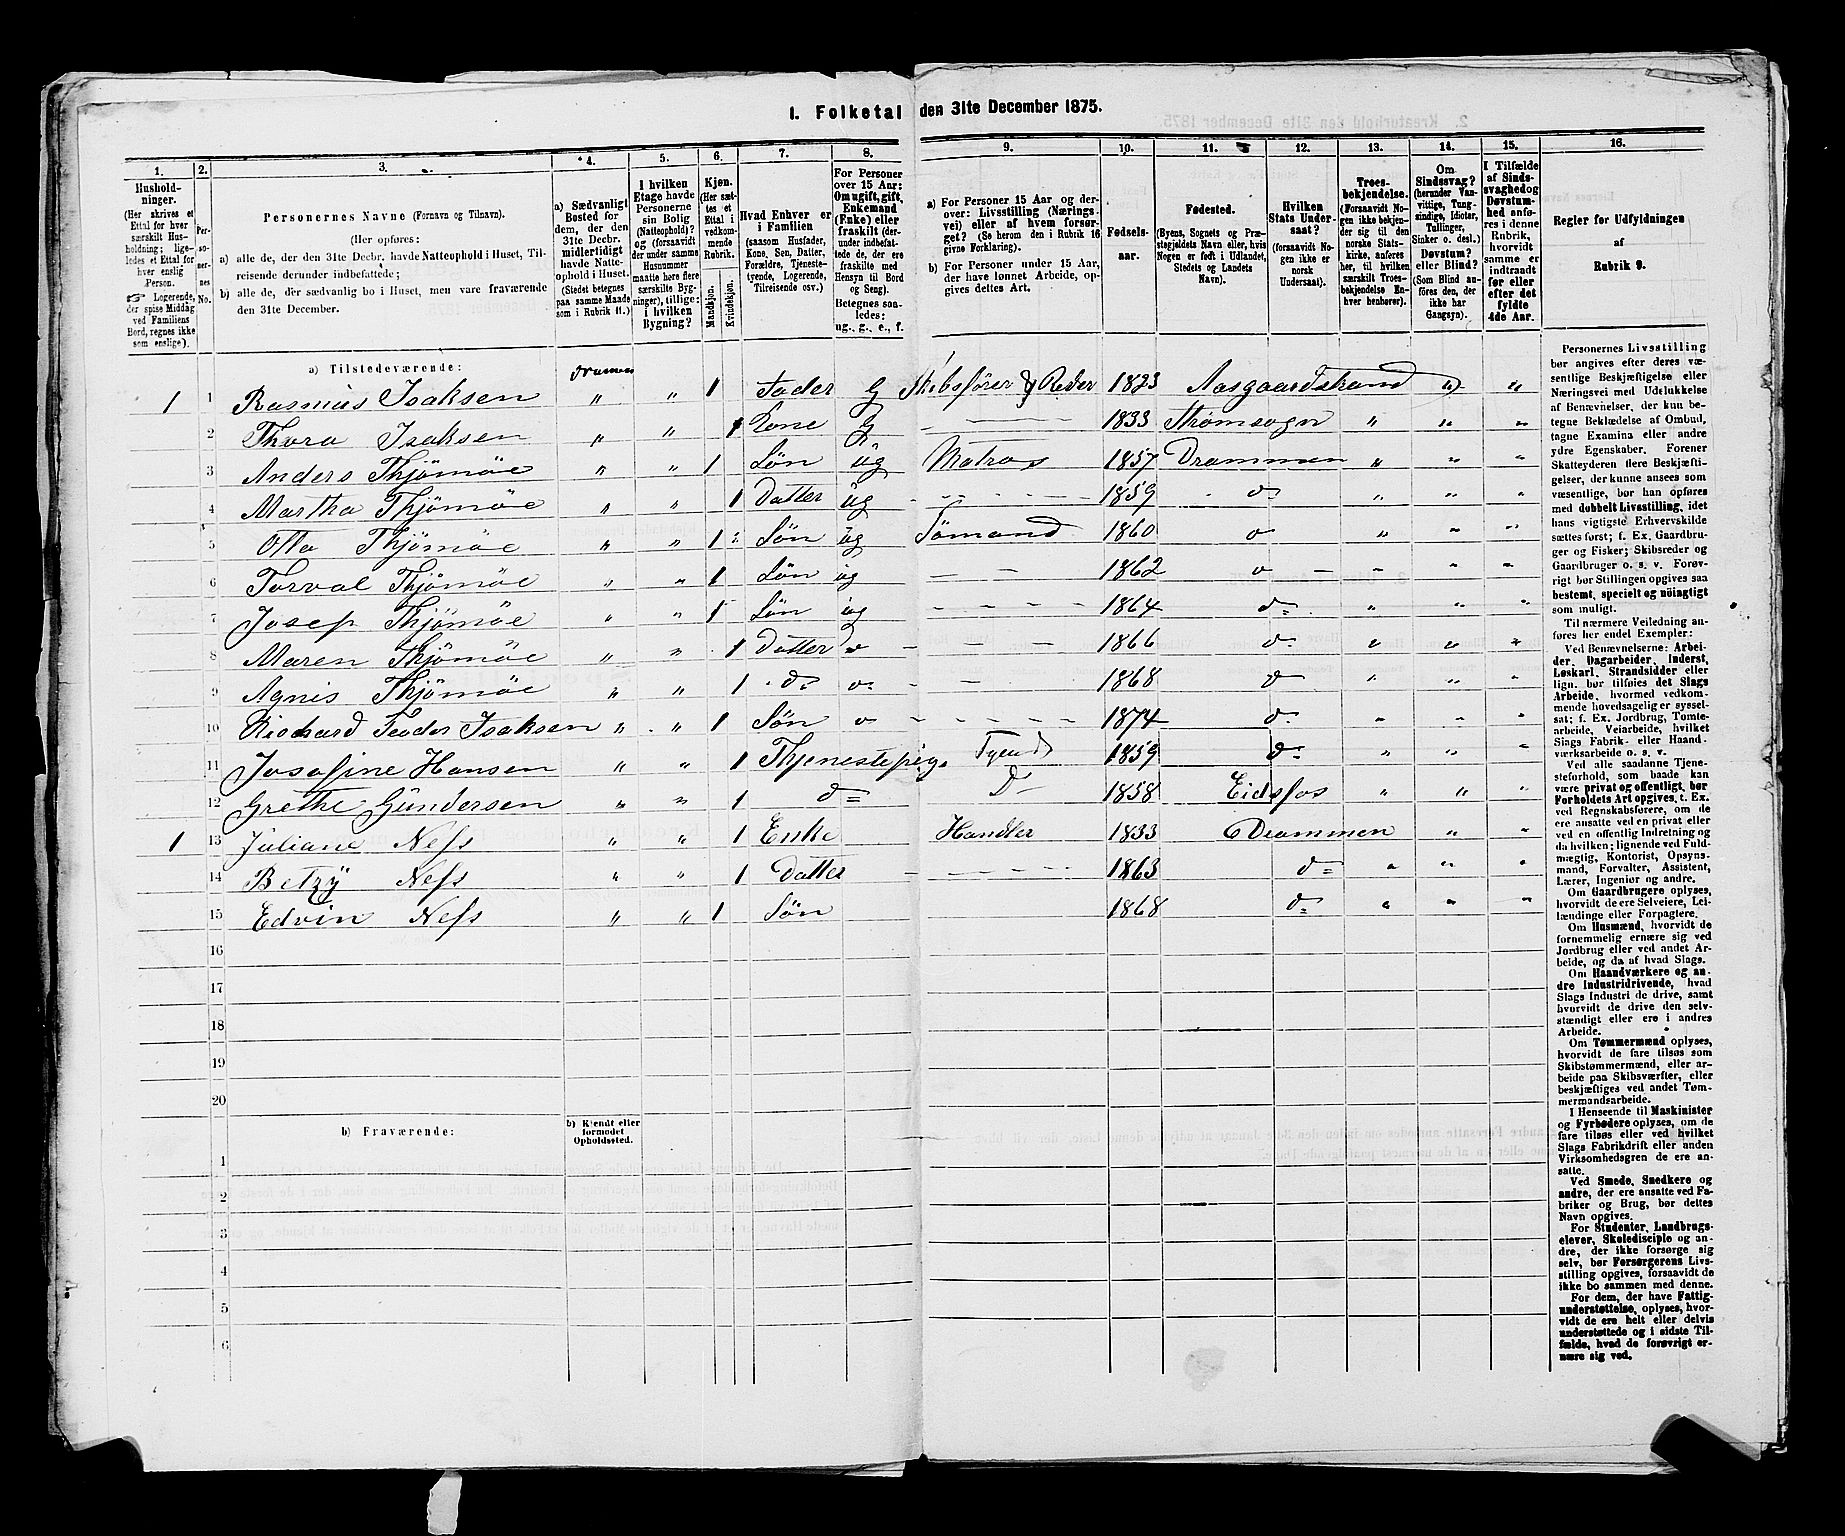 1. Folketal den 31te December 1875.
1. 2. 3. 4. 5. 6. 7. 8. 9. 10. 11. 12. 13. 14. 15. 16.
Husholdninger.
(Her skrives et Ettal for hver særskilt Husholdning; ligeledes et Ettal for hver enslig Person.
☞ Logerende, der spise Middag ved Familiens Bord, regnes ikke som enslige).
Personernes No.
Personernes Navne (Fornavn og Tilnavn).
(Her opføres:
a) alle de, der den 31te Decbr. havde Natteophold i Huset, Tilreisende derunder indbefattede;
b) alle de, der sædvanlig bo i Huset, men vare fraværende den 31te December.
a) Sædvanligt Bosted for dem, der den 31te Decbr. midlertidigt havde Natteophold i Huset. (Stedet betegnes paa samme Maade som i Rubrik 11.)
I hvilken Etage havde Personerne sin Bolig (Natteophold)? og (forsaavidt der under samme Husnummer maatte høre flere særskilte Bygninger), tillige: i hvilken Bygning?
Kjøn. (Her sættes et Ettal i vedkommende Rubrik.
Mandkjøn. Kvindekjøn.
Hvad Enhver er i Familien
(saasom Husfader, Kone, Søn, Datter, Forældre, Tjenestetyende, Logerende, Tilreisende osv.)
For Personer over 15 Aar: Om ugift, gift, Enkemand (Enke) eller fraskilt (derunder indbefattede, der ere fraskilte med Hensyn til Bord og Seng).
Betegnes saaledes: ug., g., e., f.
a) For Personer 15 Aar og derover: Livsstilling (Næringsvei) eller af hvem forsørget? (Se herom den i Rubrik 16 givne Forklaring).
b) For Personer under 15 Aar, der have lønnet Arbeide, opgives dettes Art.
Fødselsaar.
Fødested.
(Byens, Sognets og Præstegjeldets Navn eller, hvis Nogen er født i Udlandet, Stedets og Landets Navn).
Hvilken Stats Undersaat?
(forsaavidt Nogen ikke er norsk Undersaat).
Troesbekjendelse.
(Forsaavidt Nogen ikke bekjender sig til den norske Statskirke, anføres her, til hvilken særskilt Troesbekjendelse Enhver benhører).
Om Sindssvag? (herunder Vanvittige, Tungsindige, Idioter, Tullinger, Sinker o. desl.) Døvstum? eller Blind? (Som Blind anføres den, der ikke har Gangsyn).
I Tilfælde af Sindssvaghed og Døvstumhed anføres i denne Rubrik, hvorvidt samme er indtraadt før eller efter det fyldte 4de Aar.
Regler for Udfyldningen af Rubrik 9.
a) Tilstedeværende: Drammen
1 1 Rasmus Isaksen " " 1 Fader G Skibsfører & Reder 1823 Aasgaardstrand " "
2 Thora Isaksen " " 1 Kone G — 1833 Strømsogn " " "
3 Anders Thjømøe " " 1 Søn ug Matros 1857 Drammen " " "
4 Martha Thjømøe " " 1 Datter ug — 1859 do " " "
5 Otto Thjømøe " " 1 Søn ug Sømand 1860 o " " "
6 Torval Thjømøe " " 1 Søn ug — 1862 o — " " "
7 Josep Thjømøe " " 1 Søn ug — 1864 do " " "
8 Maren Thjømøe " " 1 Datter — 1866 do " " "
9 Agnis Thjømøe " " 1 do o — 1868 do " " "
10 Richard Teodor Isaksen " " 1 Søn o — 1874 do " " "
11 Josefine Hansen " " 1 Thjenestepige Tyende 1859 do " " "
12 Grethe Gündersen " " 1 do D 1858 Eidsfos " " "
1 13 Juliane Nefs " " 1 Enke Handler 1833 Drammen " "
14 Betzÿ Nefs " " 1 Datter — 1863 do " " "
15 Edvin Nefs " " 1 Søn 1868 do " " "
16
17
18
19
20
b) Fraværende:
b) Kjendt eller formodet Opholdssted.
1
2
3
4
5
6
Personernes Livsstilling
bør angives efter deres væ-
sentlige Beskjæftigelse eller
Næringsvei med Udelukkelse
af Benævnelser, der kun be-
tegne Beklædelse af Ombud,
tagne Examina eller andre
ydre Egenskaber. Forener
Skatteyderen flere Beskjæfti-
gelser, der kunne ansees som
væsentlige, bør han opføres
med dobbelt Livsstilling, idet
hans vigtigste Erhvervskilde
sættes først; f. Ex. Gaardbru-
ger og Fisker; Skibsreder og
Gaardbruger o. s. v. Forøv-
rigt bør Stillingen opgives saa
bestemt, specielt og nöiagtigt
som muligt.
Til nærmere Veiledning an-
føres her endel Exempler:
Ved Benævnelserne: Arbei-
der, Dagarbeider, Inderst,
Løskarl, Strandsidder eller
lign. bør tilføies det Slags
Arbeide, hvormed vedkom-
mende hovedsagelig er syssel-
sat; f. Ex. Jordbrug, Tomte-
arbeide, Veiarbeide, hvilket
Slags Fabrik- eller Haand-
værksarbeide o. s. v.
Ved alle saadanne Tjene-
steforhold, som baade kan
være privat og offentligt, bør
Forholdets Art opgives, t. Ex.
ved Regnskabsførere, om de
ere ansatte ved en privat eller
ved en offentlig Indretning og
da hvilken; lignende ved Fuld-
mægtig, Kontorist, Opsyns-
mand, Forvalter, Assistent,
Lærer, Ingeniør og andre.
Om Gaardbrugere oplyses,
hvorvidt de ere Selveiere, Lei-
lændinge eller Forpagtere.
Om Husmænd, hvorvidt de
fornemmelig ernære sig ved
Jordbrug eller ved andet Ar-
beide, og da af hvad Slags.
Om Haandværkere og an-
dre Industridrivende, hvad
Slags Industri de drive, samt
hvorvidt de drive den selv-
stændigt eller ere i andres
Arbeide.
Om Tømmermænd oplyses,
hvorvidt de fare tilsøs som
Skibstømmermænd, eller ar-
beide paa Skibsværfter, eller
beskjæftiges ved andet Tøm-
mermandsarbeide.
I Henseende til Maskinister
og Fyrbødere oplyses, om de
fare tilsøs eller ved hvilket
Slags Fabrikdrift eller anden
Virksomhedsgren de ere an-
satte.
Ved Smede, Snedkere og
andre, der ere ansatte ved Fa-
briker og Brug, bør dettes
Navn opgives.
For Studenter, Landbrugs-
elever, Skoledisciple og an-
dre, der ikke forsørge sig
selv, bør Forsørgerens Livs-
stilling opgives, forsaavidt de
ikke bo sammen med denne.
For dem, der have Fattig-
understøttelse, oplyses, hvor-
vidt de ere helt eller delvis
understøttede og i sidste Til-
fælde, hvad de forøvrigt er-
nære sig ved.